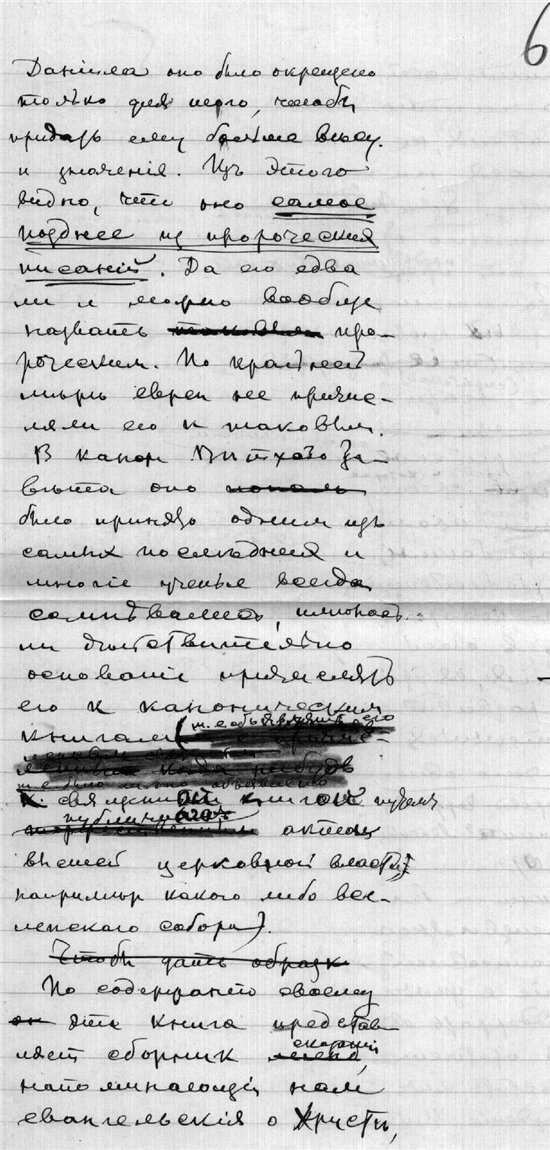 6
Даніила оно было окрещено
только для того, чтобы
придать ему больше весу
и значенія. Изъ этого
видно, что оно самое
позднее из пророческих
писаній. Да его едва
ли и можно вообще
назвать про-
роческим. По крайней
мѣрѣ евреи не причис-
ляли его к таковым.
В канон Ветхого За-
вѣта оно
было принято одним изъ
самых последних и
многіе ученые всегда
сомнѣвались, имеются
ли действительно
основаніи причислять
его к каноническим
книгам (т. е. объявлять его
священной книгой путем
публичнаго актом
высшей церковной власти,
например какого либо все-
ленского собора).
Чтобы дать образ
По содержанію своему
эта книга представ-
ляет сборник сказаній,
напоминающій нам
евангельскія о Христѣ,